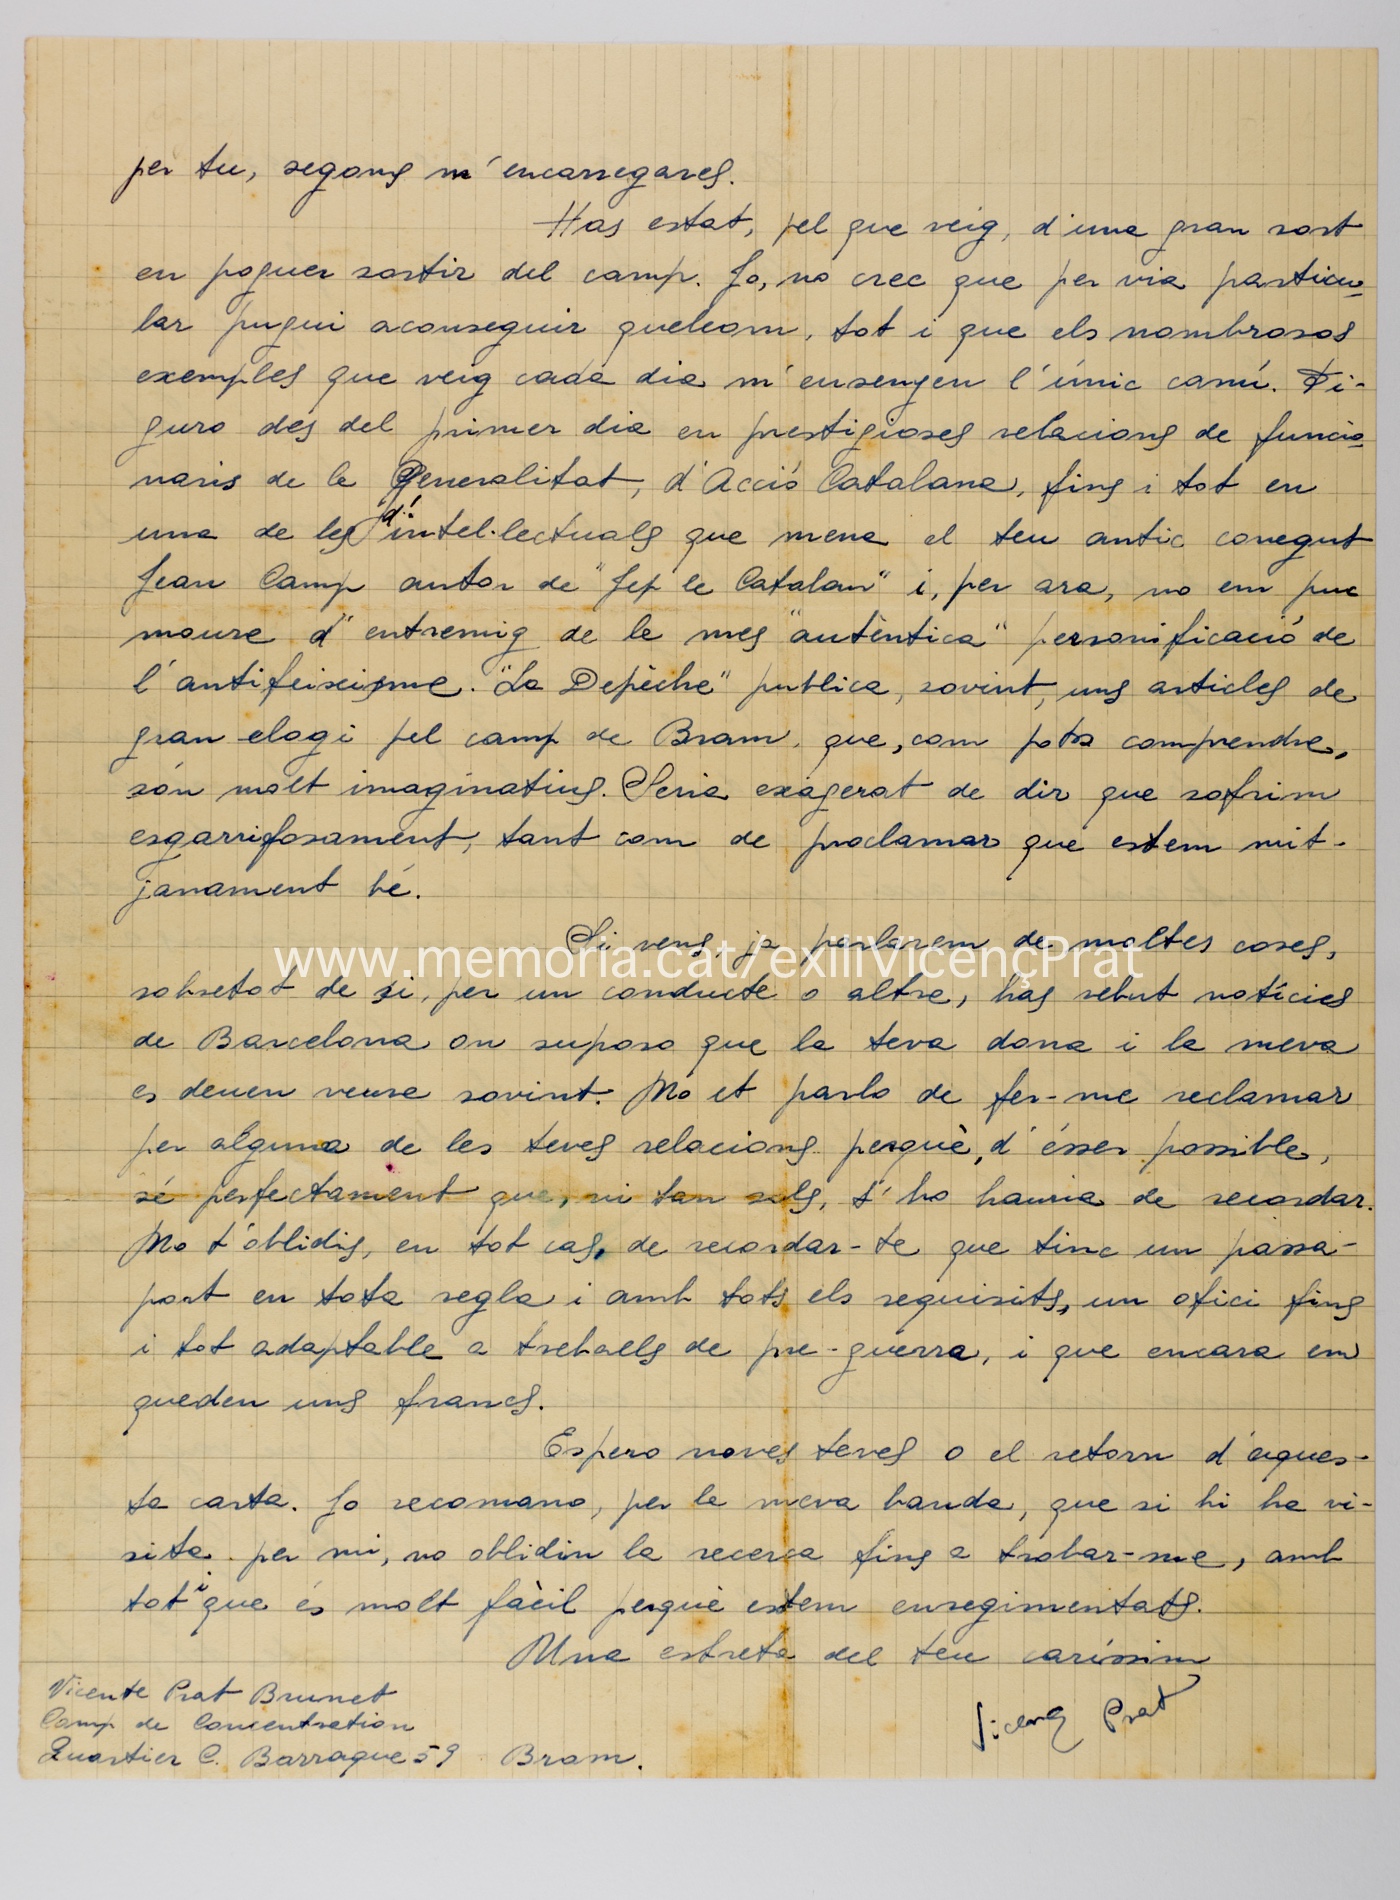 per tu, segons m'encarregares.
Has estat, pel que veig, d'una gran sort
en poguer sortir del camp. Jo, no crec que per via particu-
lar pugui aconseguir quelcom, tot i que els nombrosos
exemples que veig cada dia m'ensenyen l'únic camí. Fi-
guro des del primer dia en prestigioses relacions de funcio-
naris de la Generalitat, d'Acció Catalana, fins i tot en
una de les d'intel·lectuals que mena el teu antic conegut
Jean Camp autor de "Jep le Catalan" i, per ara, no em puc
moure d'entremig de la mes "autèntica" personificació de
l'antifeixisme. "La Depèche" publica, sovint, uns articles de
gran elogi pel camp de Bram, que, com pots comprendre,
són molt imaginatius. Seria exagerat de dir que sofrim
esgarrifosament, tant com de proclamar que estem mit-
janament bé.
Si vens, ja parlarem de moltes coses,
www.memoria.cat/exiliVicençPrat
sobretot de si, per un conducte o altre, has rebut notícies
de Barcelona on suposo que la teva dona i la meva
es deuen veure sovint. No et parlo de fer-me reclamar
per alguna de les teves relacions perquè, d'ésser possible,
sé perfectament que, ni tan sols, t'ho hauria de recordar.
No t'oblidis, en tot cas, de recordar-te que tinc un passa-
port en tota regla i amb tots els requisits, un ofici fins
i tot adaptable a treballs de pre-guerra, i que encara em
queden uns francs.
Espero noves teves o el retorn d'aques-
ta carta. Jo recomano, per la meva banda, que si hi ha vi-
sita per mi, no oblidin la recerca fins a trobar-me, amb
tot i que és molt fàcil perquè estem enregimentats.
Una estreta del teu caríssim
Vicenç Prat
Vicente Prat Brunet
Camp de Concentration
Quartier C. Barraque 59 Bram.